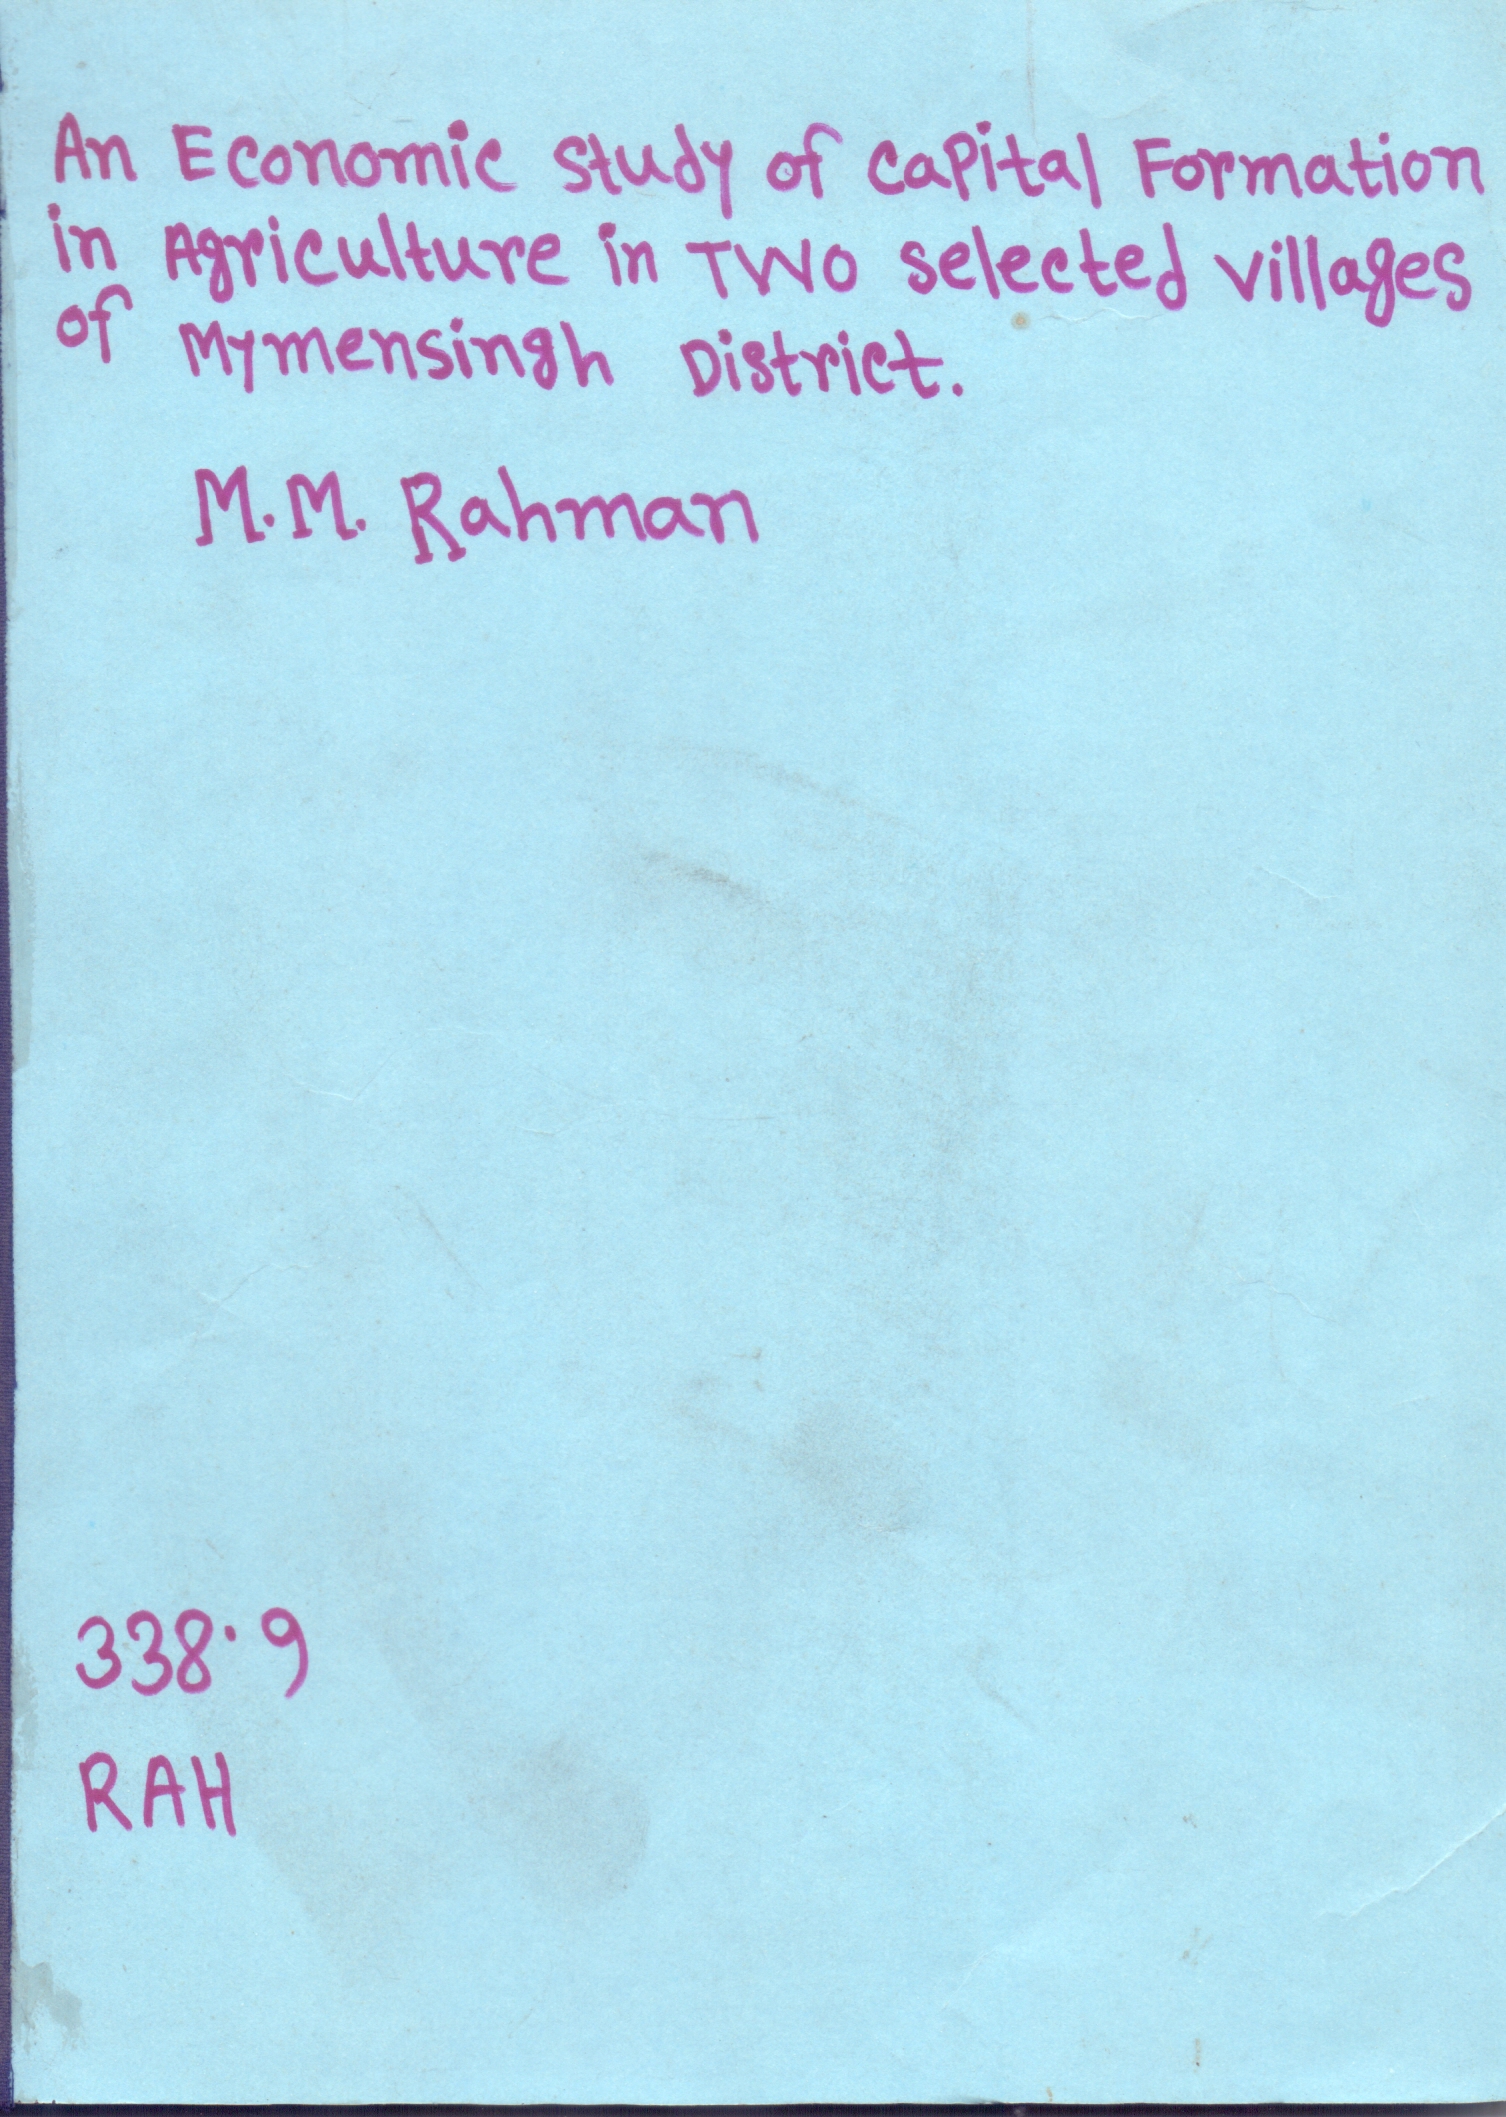 An Economic study of capital Formation
in Agriculture in Two selected villages
of Mymensingh District.
M.M. Rahman
338.9
RAH